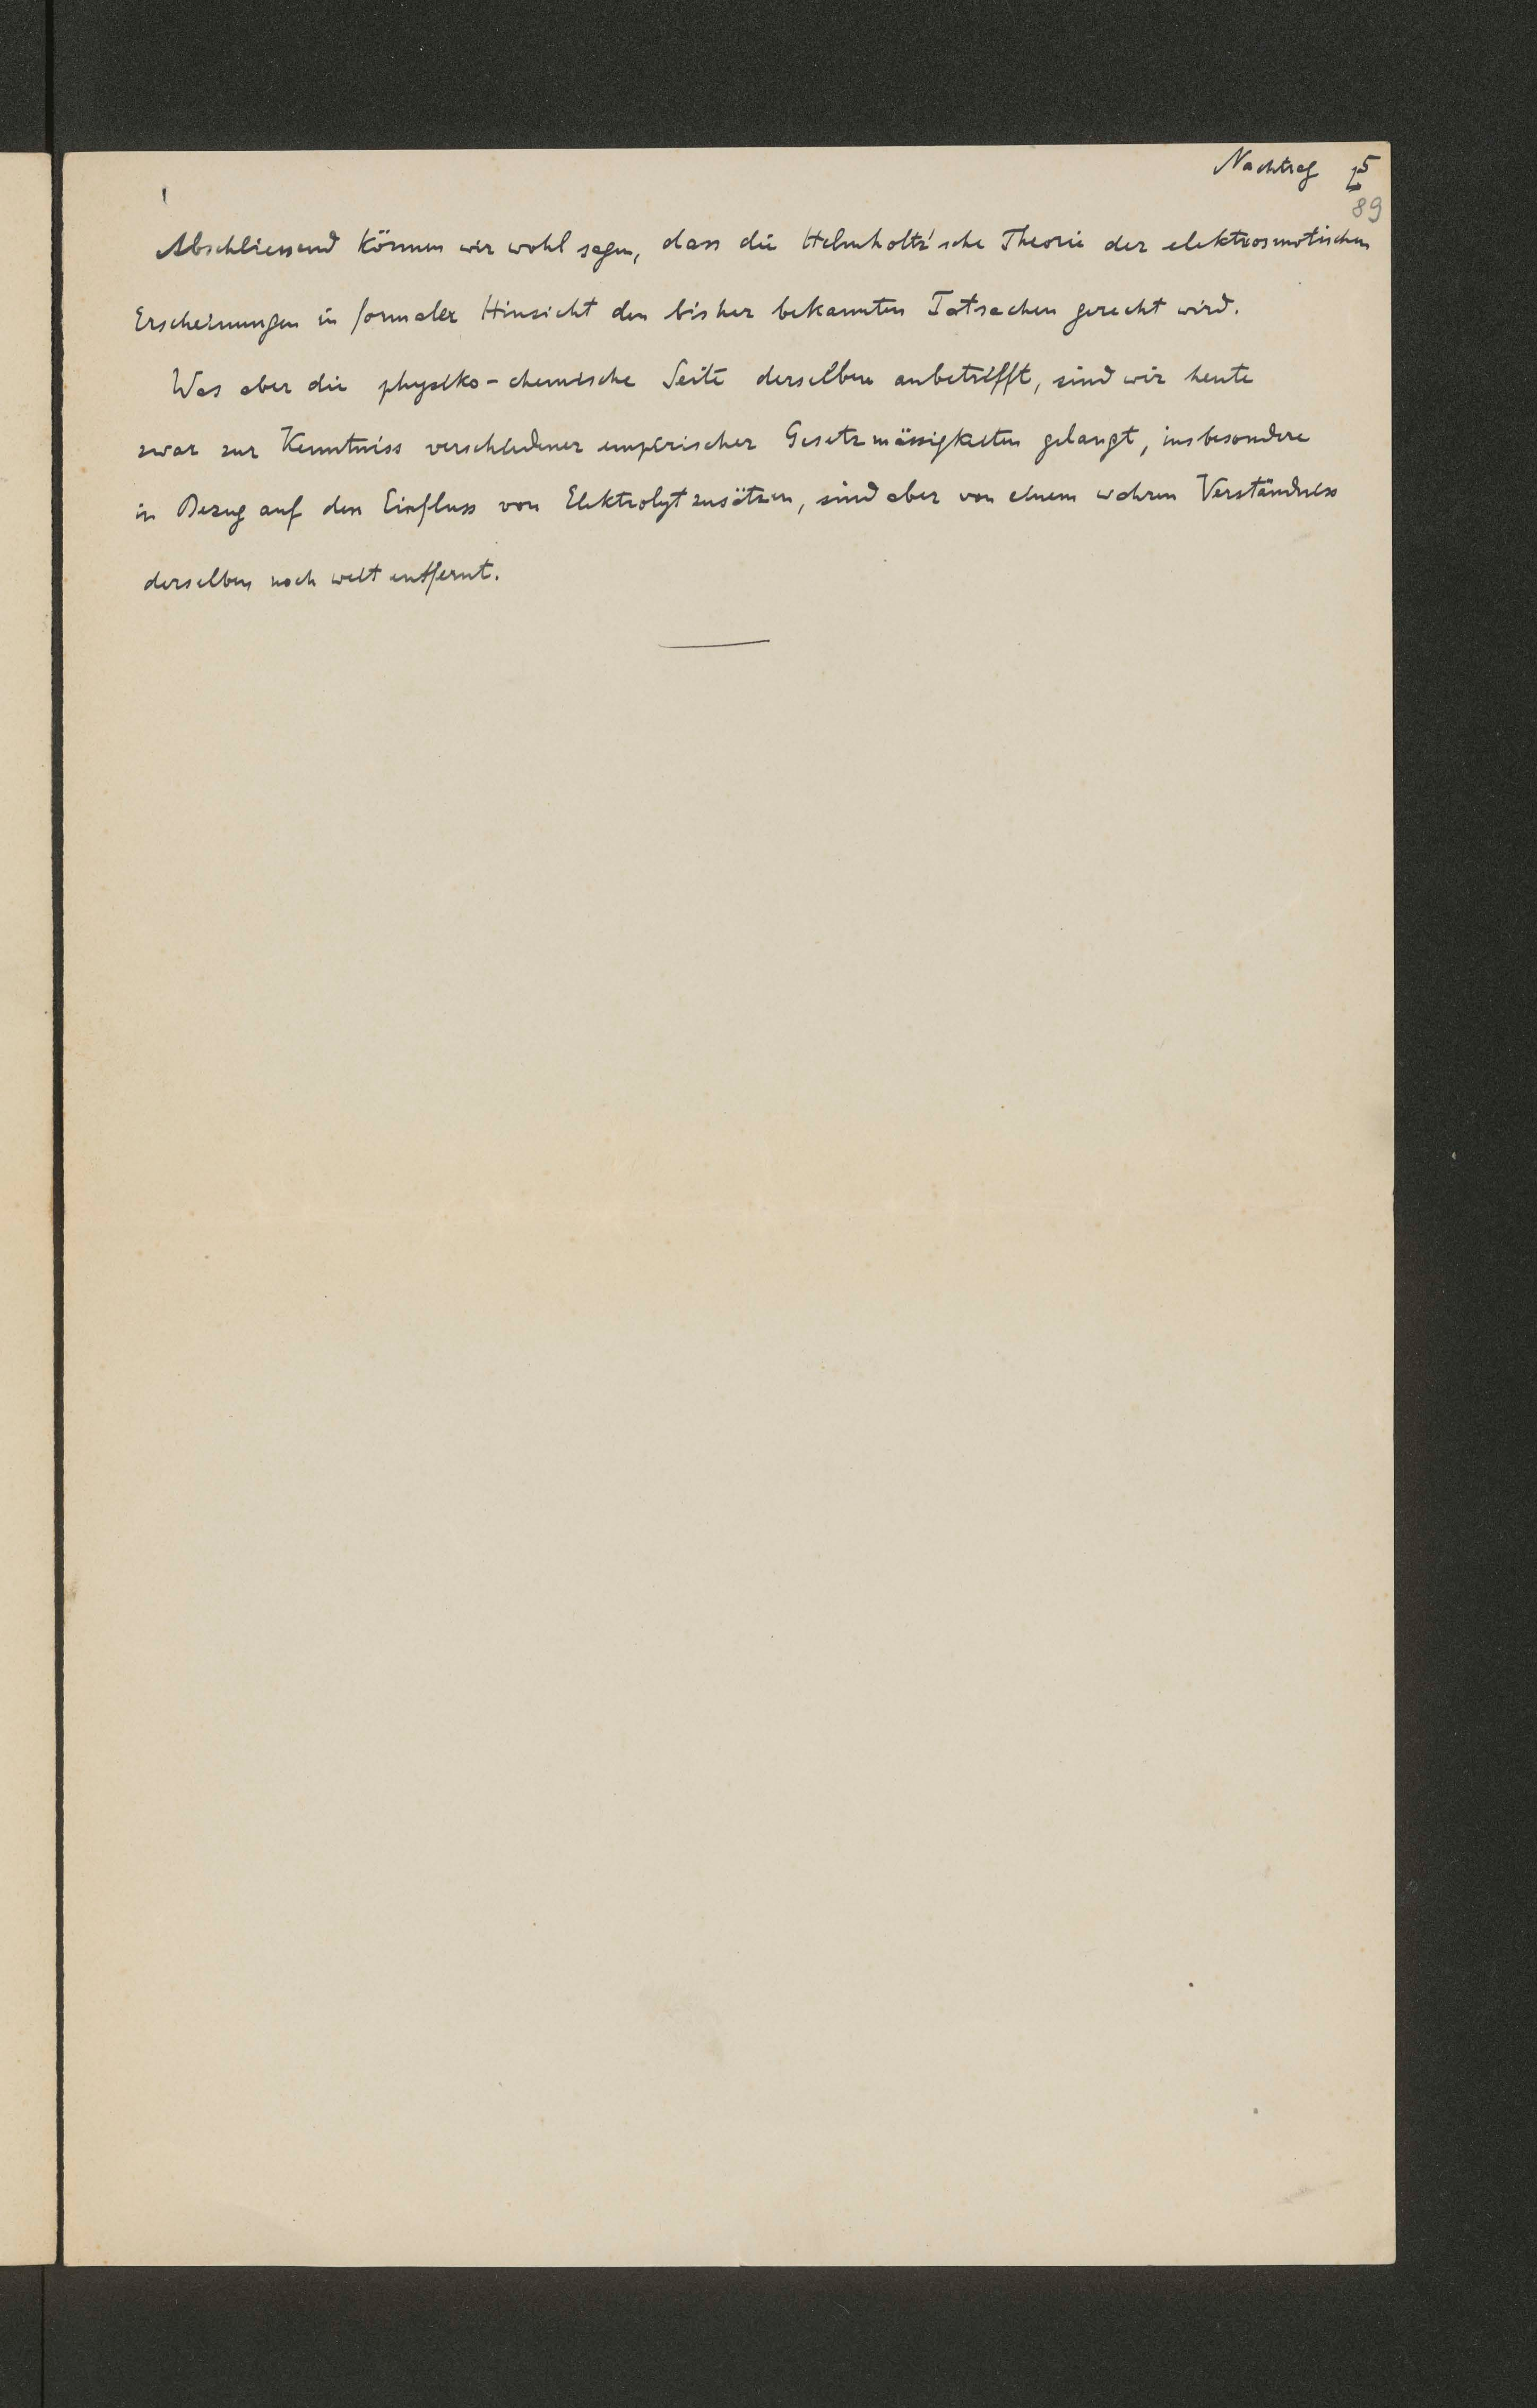 Nachtrag 5
89
Abschliessend können wir wohl sagen, dass die Helmholtz'sche Theorie der elektrosmotischen
Erscheinungen in formaler Hinsicht den bisher bekannten Tatsachen gerecht wird.
Was aber die physiko-chemische Seite derselben anbetrifft, sind wir heute
zwar zur Kenntniss verschiedener empirischer Gesetzmässigkeiten gelangt, insbesondere
in Bezug auf den Einfluss von Elektrolytzusätzen, sind aber von einem wahren Verständniss
derselben noch weit entfernt.